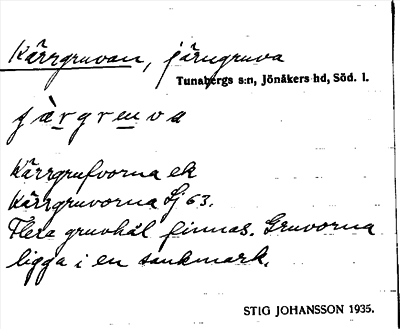 Kärrgruvan, järngruva
Tunabergs s:n, Jönåkers hd, Söd. l.
Kärrgrufvorna ek
Kärrgruvorna Lj 63.
Flera gruvhål finnas. Gruvorna
ligga i en sankmark.
STIG JOHANSSON 1935.